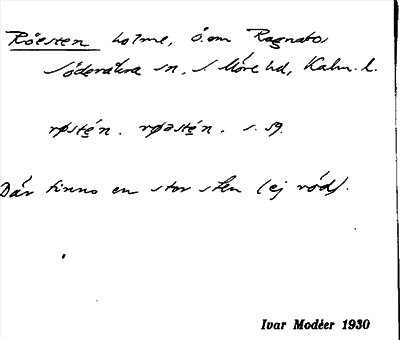 Röesten holme, ö. om Ragnabo
Söderåkra sn, S. Möre hd, Kalm. l.
røstén. røəstén. s. 59.
Där finns en stor sten (ej röd).
Ivar Modéer 1930